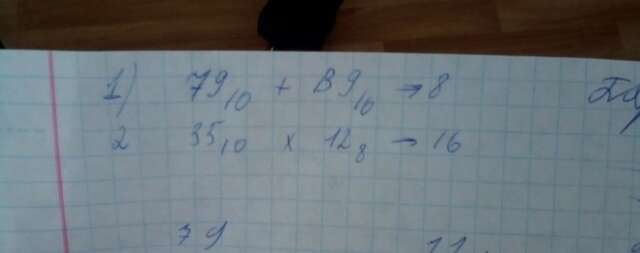 1) 79₁₀ + B9₁₆ → 8
2 35₁₀ x 12₈ → 16
79
11